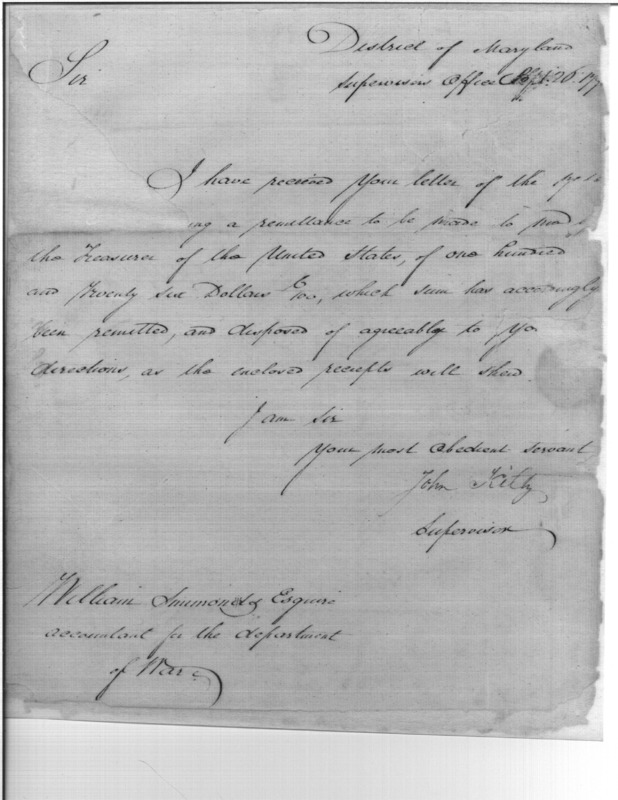 District of Maryland
Sir
Supervisors Office Sept. 26 179
I have received your letter of the 19th
ng a remittance to be made to me by
the Treasurer of the United States, of one hundred
and Twenty six Dollars &c, which sum has accordingly
been remitted, and disposed of agreeably to yo
directions, as the enclosed receipts will shew
I am Sir
your most obedient servant
John Kilty
Supervisor
William Simmonds Esquire
accountant for the department
of War